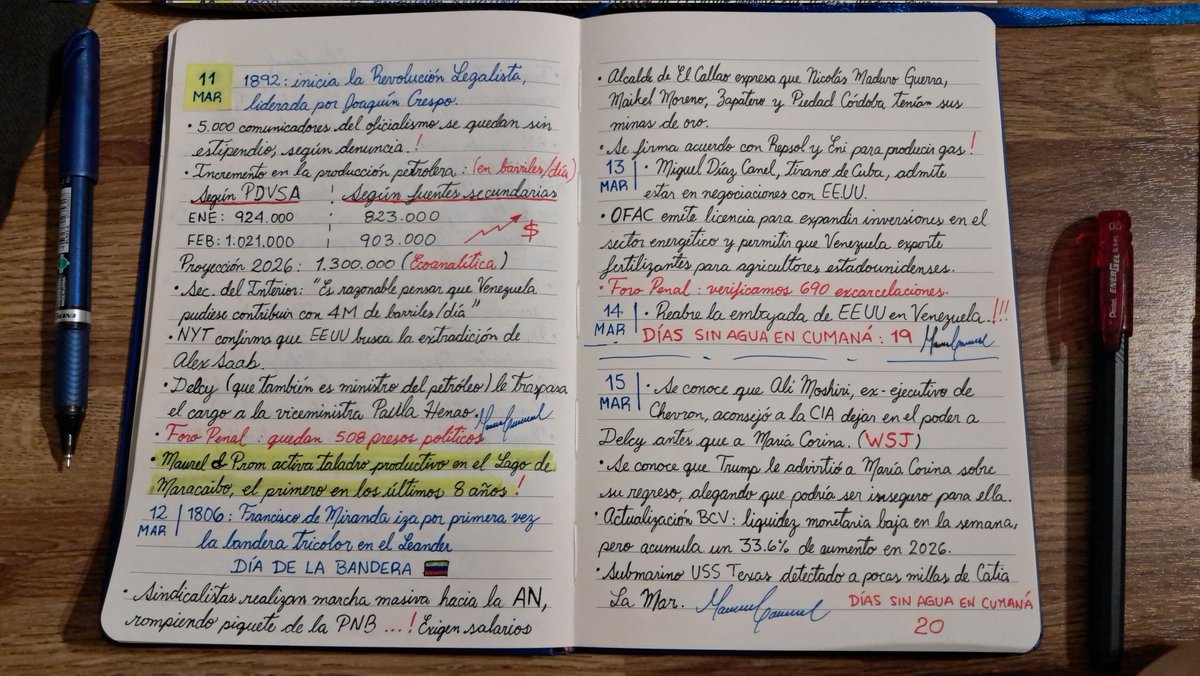 11
MAR
1892: inicia la Revolución Legalista,
liderada por Joaquín Crespo.
• 5.000 comunicadores del oficialismo se quedan sin
estipendio, según denuncia. !
• Incremento en la producción petrolera: (en barriles/día)
Según PDVSA ¦ Según fuentes secundarias
ENE: 924.000 ¦ 823.000
FEB: 1.021.000 ¦ 903.000 $
Proyección 2026: 1.300.000 (Ecoanalítica)
• Sec. del Interior: "Es razonable pensar que Venezuela
pudiese contribuir con 4M de barriles/día"
• NYT confirma que EEUU busca la extradición de
Alex Saab.
• Delcy (que también es ministro del petróleo) le traspasa
el cargo a la viceministra Paula Henao.
• Foro Penal: quedan 508 presos políticos
• Maurel & Prom activa taladro productivo en el Lago de
Maracaibo, el primero en los últimos 8 años !
12
MAR
1806: Francisco de Miranda iza por primera vez
la bandera tricolor en el Leander
DÍA DE LA BANDERA
• Sindicalistas realizan marcha masiva hacia la AN,
rompiendo piquete de la PNB ...! Exigen salarios
• Alcalde de El Callao expresa que Nicolás Maduro Guerra,
Maikel Moreno, Zapatero y Piedad Córdoba tenían sus
minas de oro.
• Se firma acuerdo con Repsol y Eni para producir gas !
13
MAR
• Miguel Díaz Canel, tirano de Cuba, admite
estar en negociaciones con EEUU.
• OFAC emite licencia para expandir inversiones en el
sector energético y permitir que Venezuela exporte
fertilizantes para agricultores estadounidenses.
• Foro Penal: verificamos 690 excarcelaciones.
14
MAR
• Reabre la embajada de EEUU en Venezuela !!!
DÍAS SIN AGUA EN CUMANÁ: 19
15
MAR
• Se conoce que Alí Moshiri, ex-ejecutivo de
Chevron, aconsejó a la CIA dejar en el poder a
Delcy antes que a María Corina. (WSJ)
• Se conoce que Trump le advirtió a María Corina sobre
su regreso, alegando que podría ser inseguro para ella.
• Actualización BCV: liquidez monetaria baja en la semana,
pero acumula un 33.6% de aumento en 2026.
• Submarino USS Texas detectado a pocas millas de Catia
La Mar.
DÍAS SIN AGUA EN CUMANÁ
20